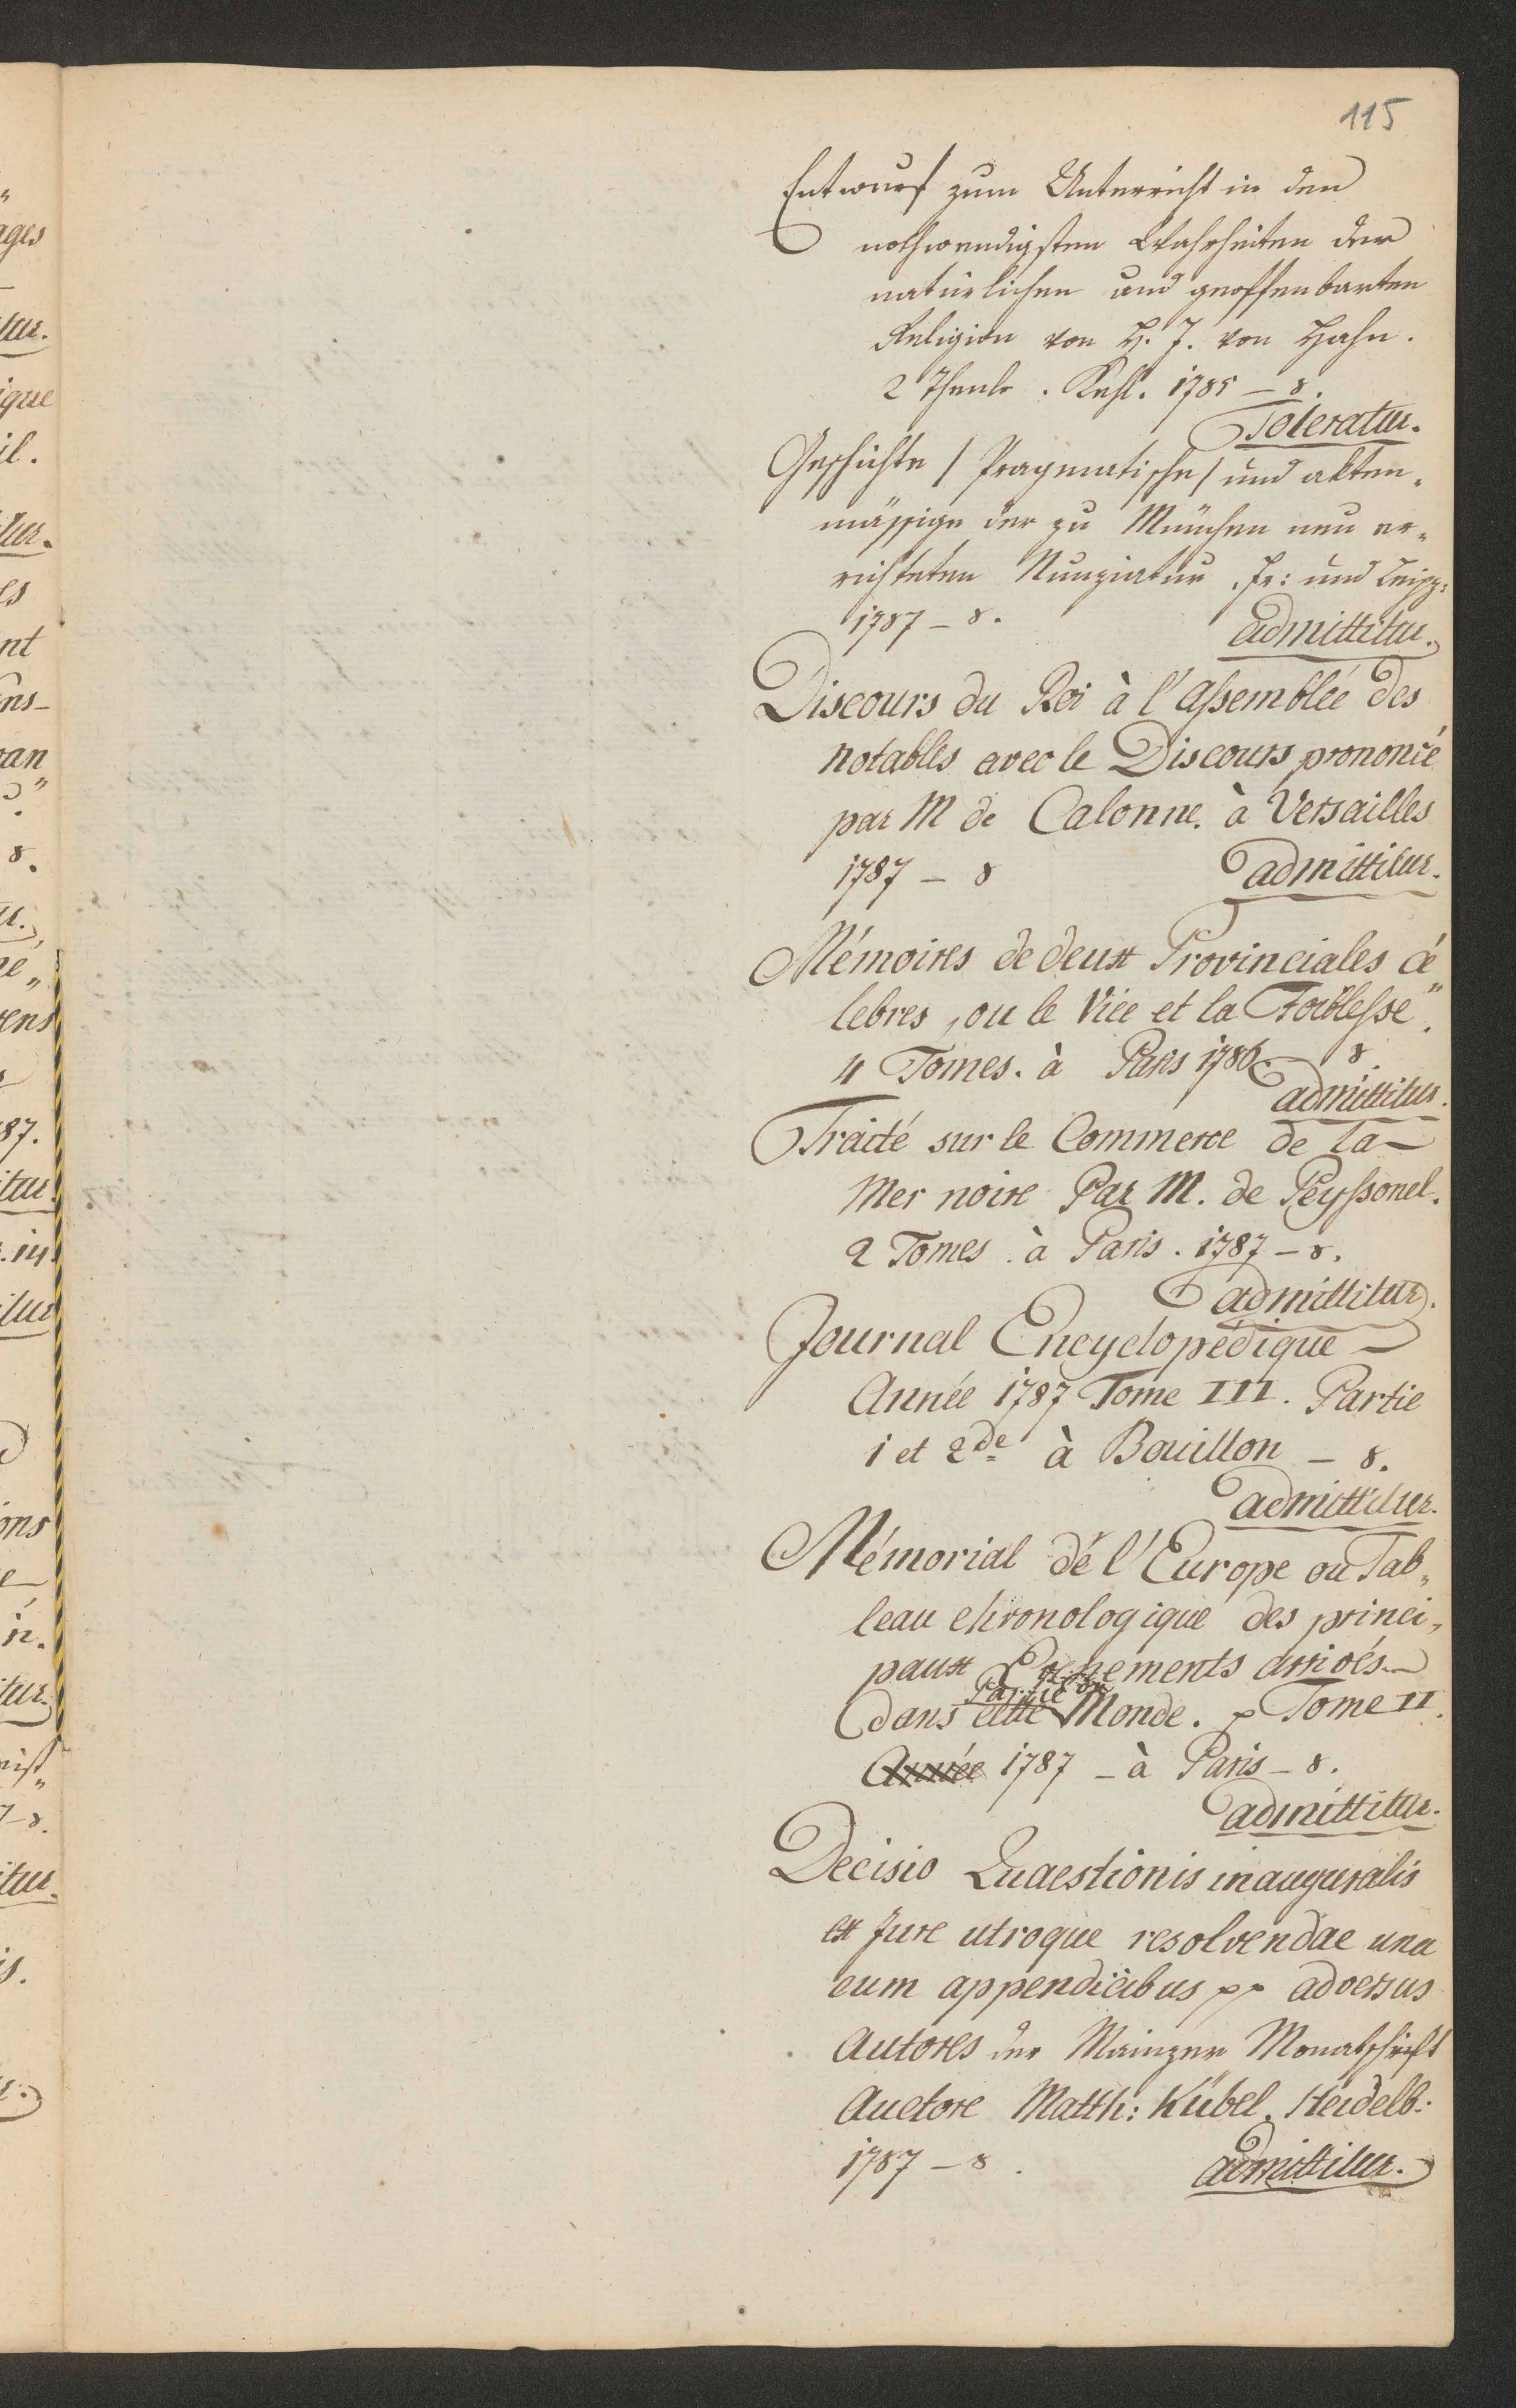 115
Entwurf zum Unterricht in den
nothwendigsten Wahrheiten der
natürlichen und geoffenbarten
Religion von H. J. von Hahn.
2 Theile. Kehl. 1785 – 8.
Toleratur.
Geschichte / Pragmatische / und akten„
mässige der zu München neu er„
richteten Nunziatur. Fr: und Leipz:
1787 – 8.
admittitur.
Discours du Roi à l'Assemblée des
notables avec le Discours prononcé
par M de Calonne. à Versailles
1787 – 8
admittitur.
Mémoires de deux Provinciales cé
lebres, ou le Vice et la Foiblesse„
4 Tomes. à Paris 1786. – 8
admittitur.
Traité sur le Commerce de la
Mer noire Par M. de Peyssonel.
2 Tomes. à Paris. 1787 – 8.
admittitur.
Journal Encyclopédique
Année 1787 Tome III. Partie
1 et 2de à Bouillon – 8.
admittitur.
Mémorial dé l'Europe ou Tab„
leau chronologique des princi„
paux Evenements arrivés
Partie du
dans cette Monde. p Tome II.
Année 1787 – à Paris – 8.
admittitur.
Decisio Quaestionis inauguralis
ex Jure utroque resolvendae una
cum appendicibus pp adversus
Autores der Mainzer Monatschrift
Auctore Matth: Kübel. Heidelb:
1787 – 8.
admittitur.